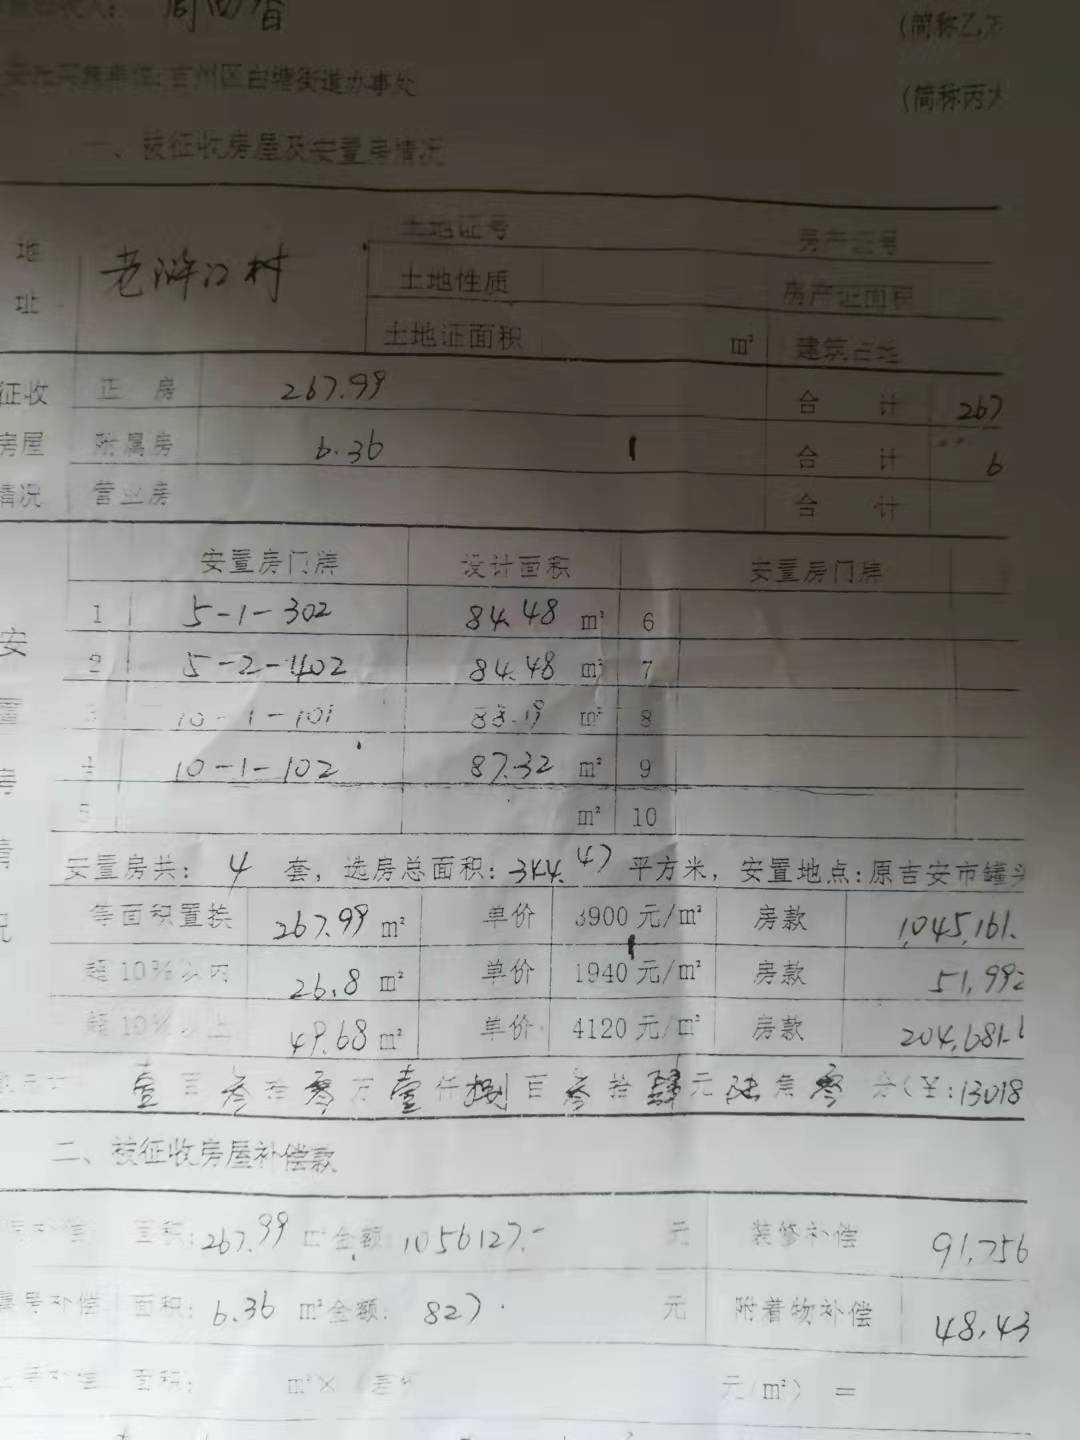 (简称乙方
吉州区白塘街道办事处 (简称丙方
一、被征收房屋及安置房情况
地址 老浒江村 土地证号 房产证号
土地性质 房产证面积
土地证面积 m² 建筑占地
征收 正房 267.99 合计 267
房屋 附属房 6.36 合计 6
情况 营业房 合计
安置房门牌 设计面积 安置房门牌
1 5-1-302 84.48 m² 6
2 5-2-402 84.48 m² 7
3 10-1-101 88.19 m² 8
4 10-1-102 87.32 m² 9
5 m² 10
安置房共：4 套，选房总面积：344.47 平方米，安置地点：原吉安市罐头
等面积置换 267.99 m² 单价 3900 元/m² 房款 1,045,161.
超10%以内 26.8 m² 单价 1940 元/m² 房款 51,992
超10%以上 49.68 m² 单价 4120 元/m² 房款 204,681.6
壹百叁拾零万壹仟捌百叁拾肆元陆角零分(¥:13018
二、被征收房屋补偿款
补偿 面积：267.99 m²金额 1056127.- 元 装修补偿 91,756
属房补偿 面积：6.36 m²金额：827. 元 附着物补偿 48,43
补偿 面积： m²× 元/m²） =